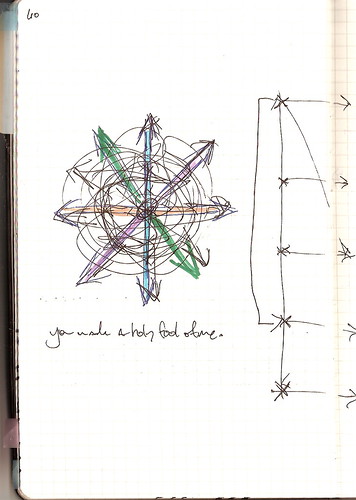 60
you made a holy fool of me.